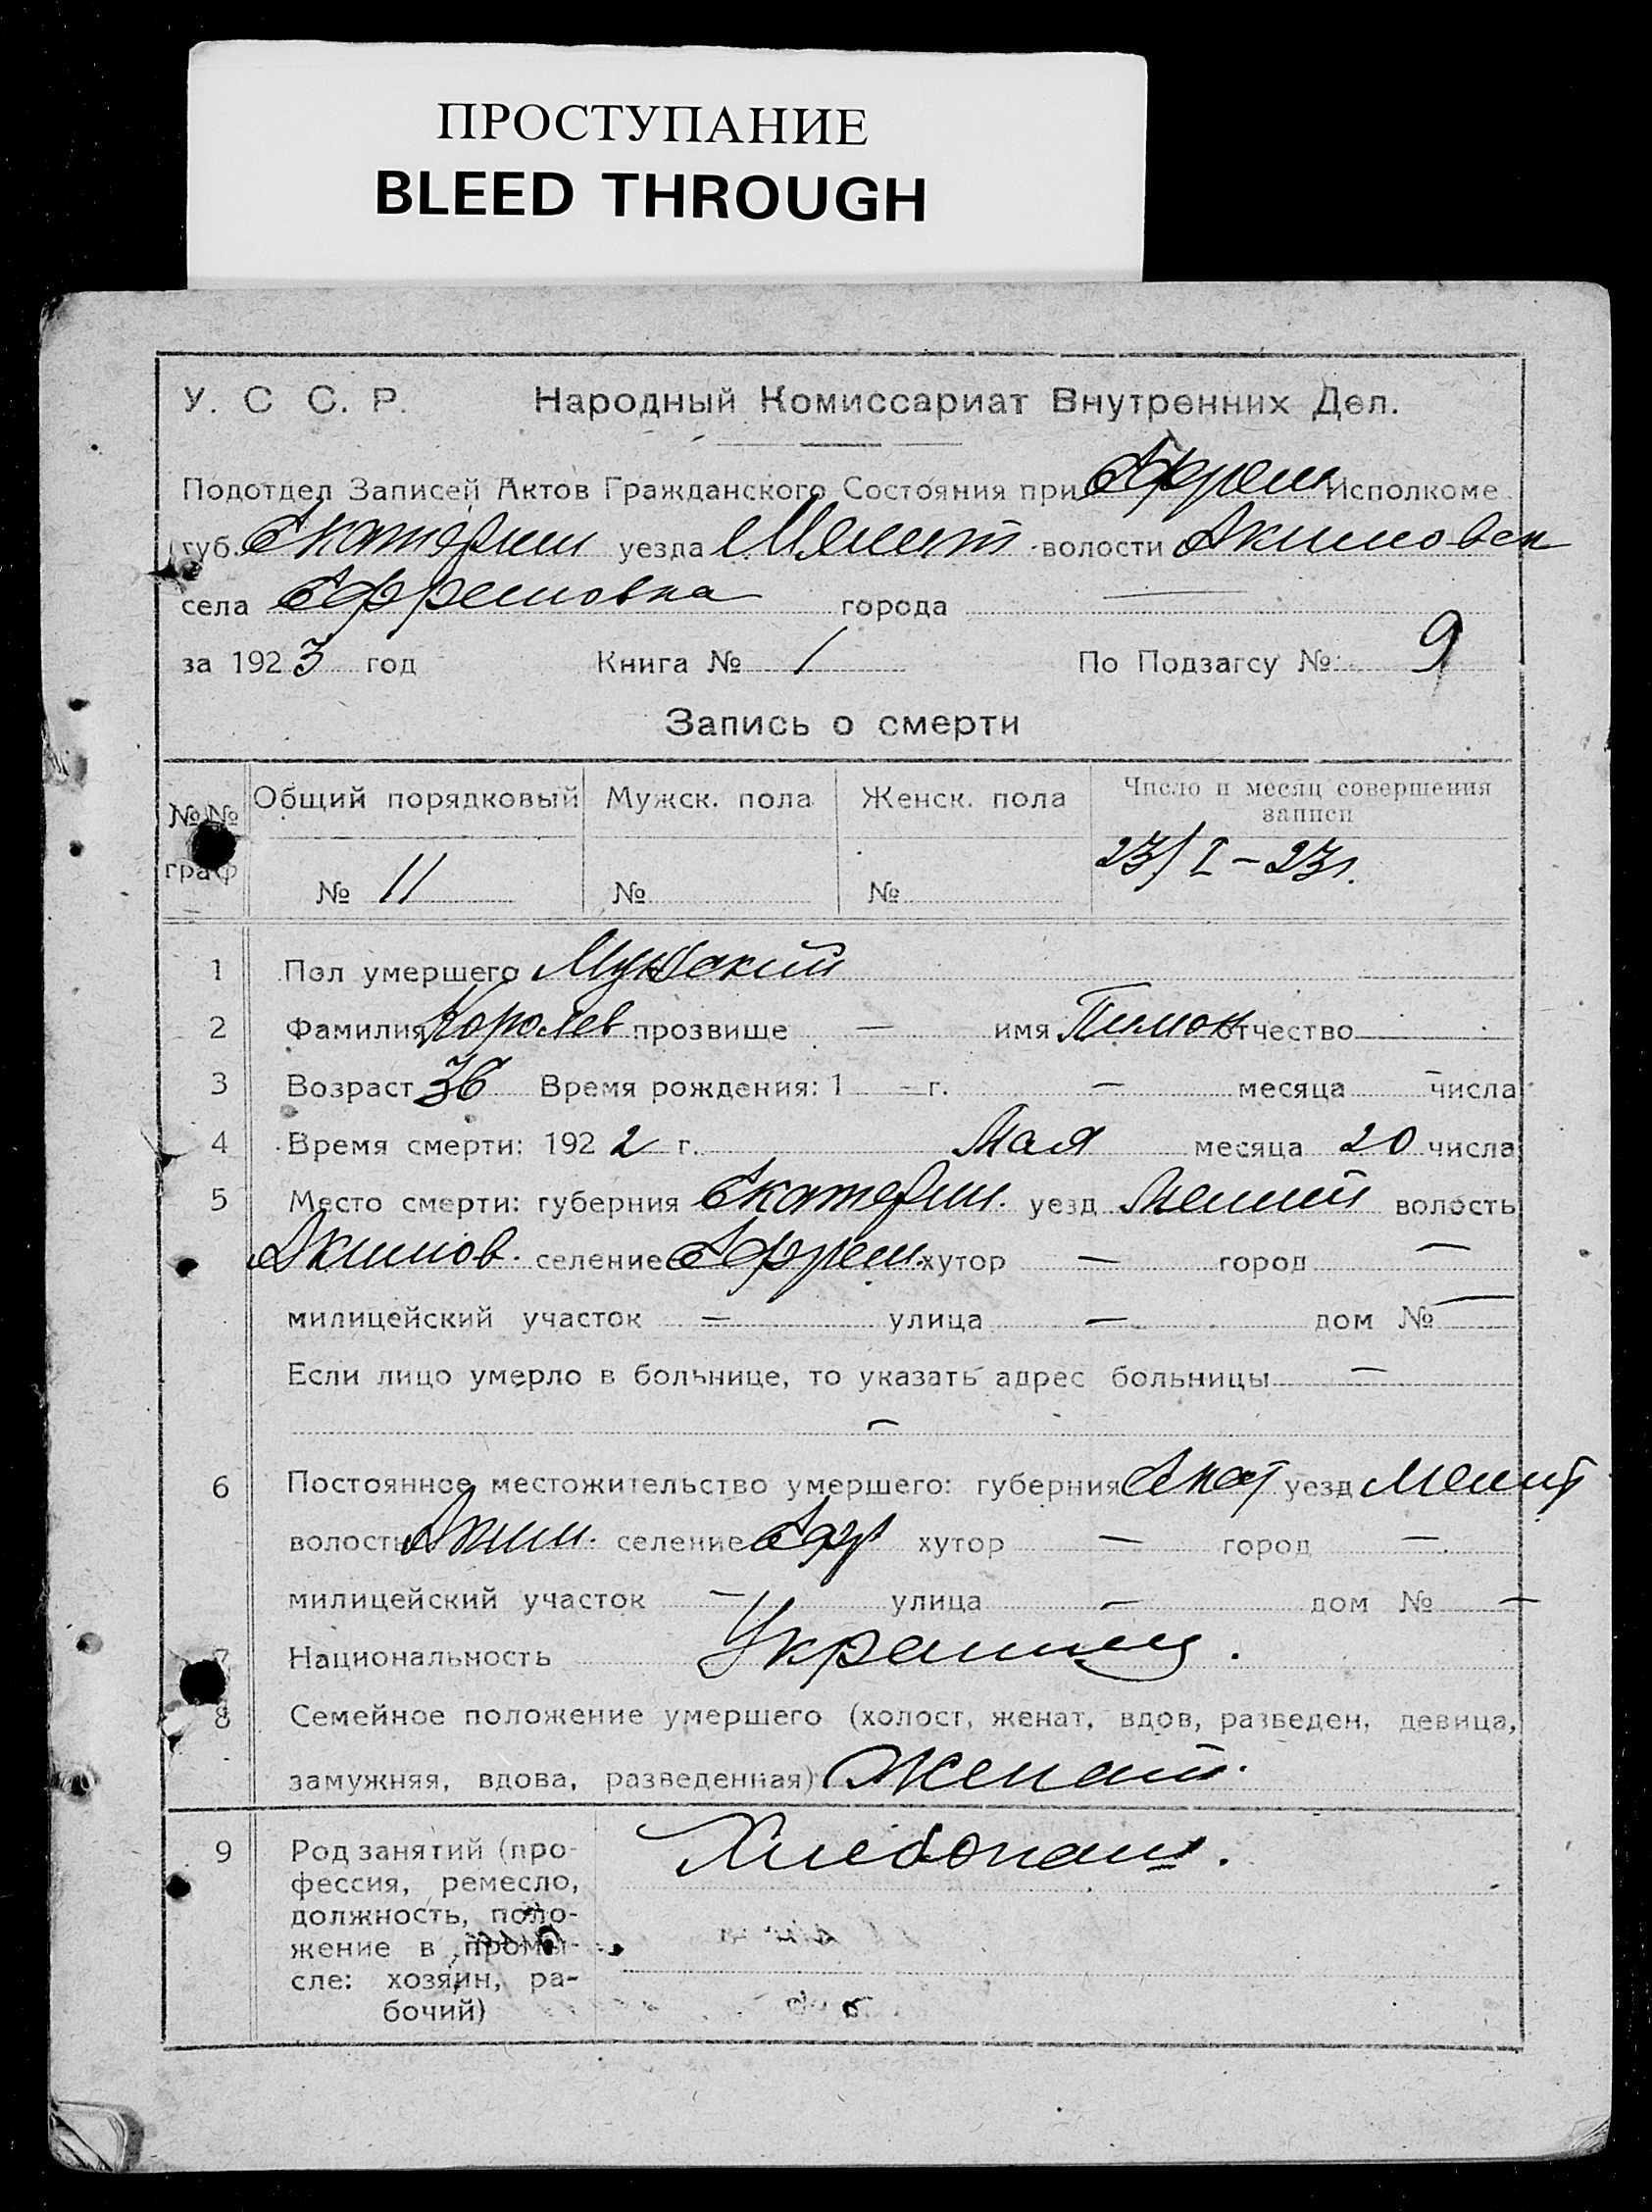 ПРОСТУПАНИЕ
BLEED THROUGH
У. С С. Р. Народный Комиссариат Внутренних Дел.
Подотдел Записей Актов Гражданского Состояния при Ефрем Исполкоме
губ. Екатерин уезда Мелит волости Акимовск
села Ефремовка города
за 1923 год Книга № 1 По Подзагсу № 9
Запись о смерти
№№ граф Общий порядковый Мужск. пола Женск. пола Число и месяц совершения записи
№ 11 № № 23/I – 23 г.
1 Пол умершего Мужский
2 Фамилия Королев прозвище — имя Тимон отчество
3 Возраст 36 Время рождения: 1 — г. — месяца — числа
4 Время смерти: 1922 г. Мая месяца 20 числа
5 Место смерти: губерния Екатерин. уезд Мелит волость
Акимов. селение Ефрем. хутор — город —
милицейский участок — улица — дом № —
Если лицо умерло в больнице, то указать адрес больницы —
—
6 Постоянное местожительство умершего: губерния Екат уезд Мелит
волость Аким. селение Ефр хутор — город —
милицейский участок — улица — дом № —
7 Национальность Украинец.
8 Семейное положение умершего (холост, женат, вдов, разведен, девица,
замужняя, вдова, разведенная) Женат.
9 Род занятий (про- Хлебопаш.
фессия, ремесло,
должность, поло-
жение в промы-
сле: хозяин, ра-
бочий)